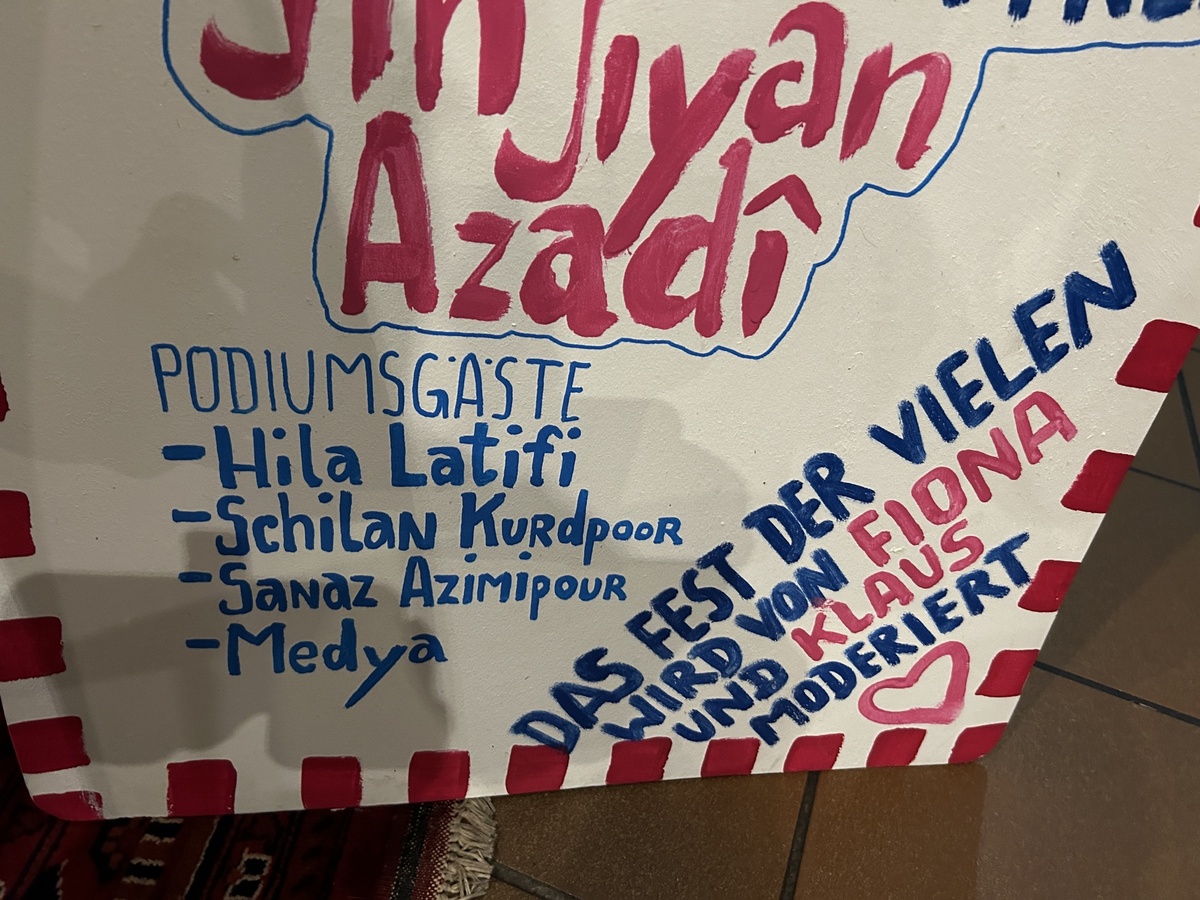 Jin Jiyan
Azadî
PODIUMSGÄSTE
- Hila Latifi
- Schilan Kurdpoor
- Sanaz Azimipour
- Medya
DAS FEST DER VIELEN
WIRD VON FIONA
UND KLAUS
MODERIERT